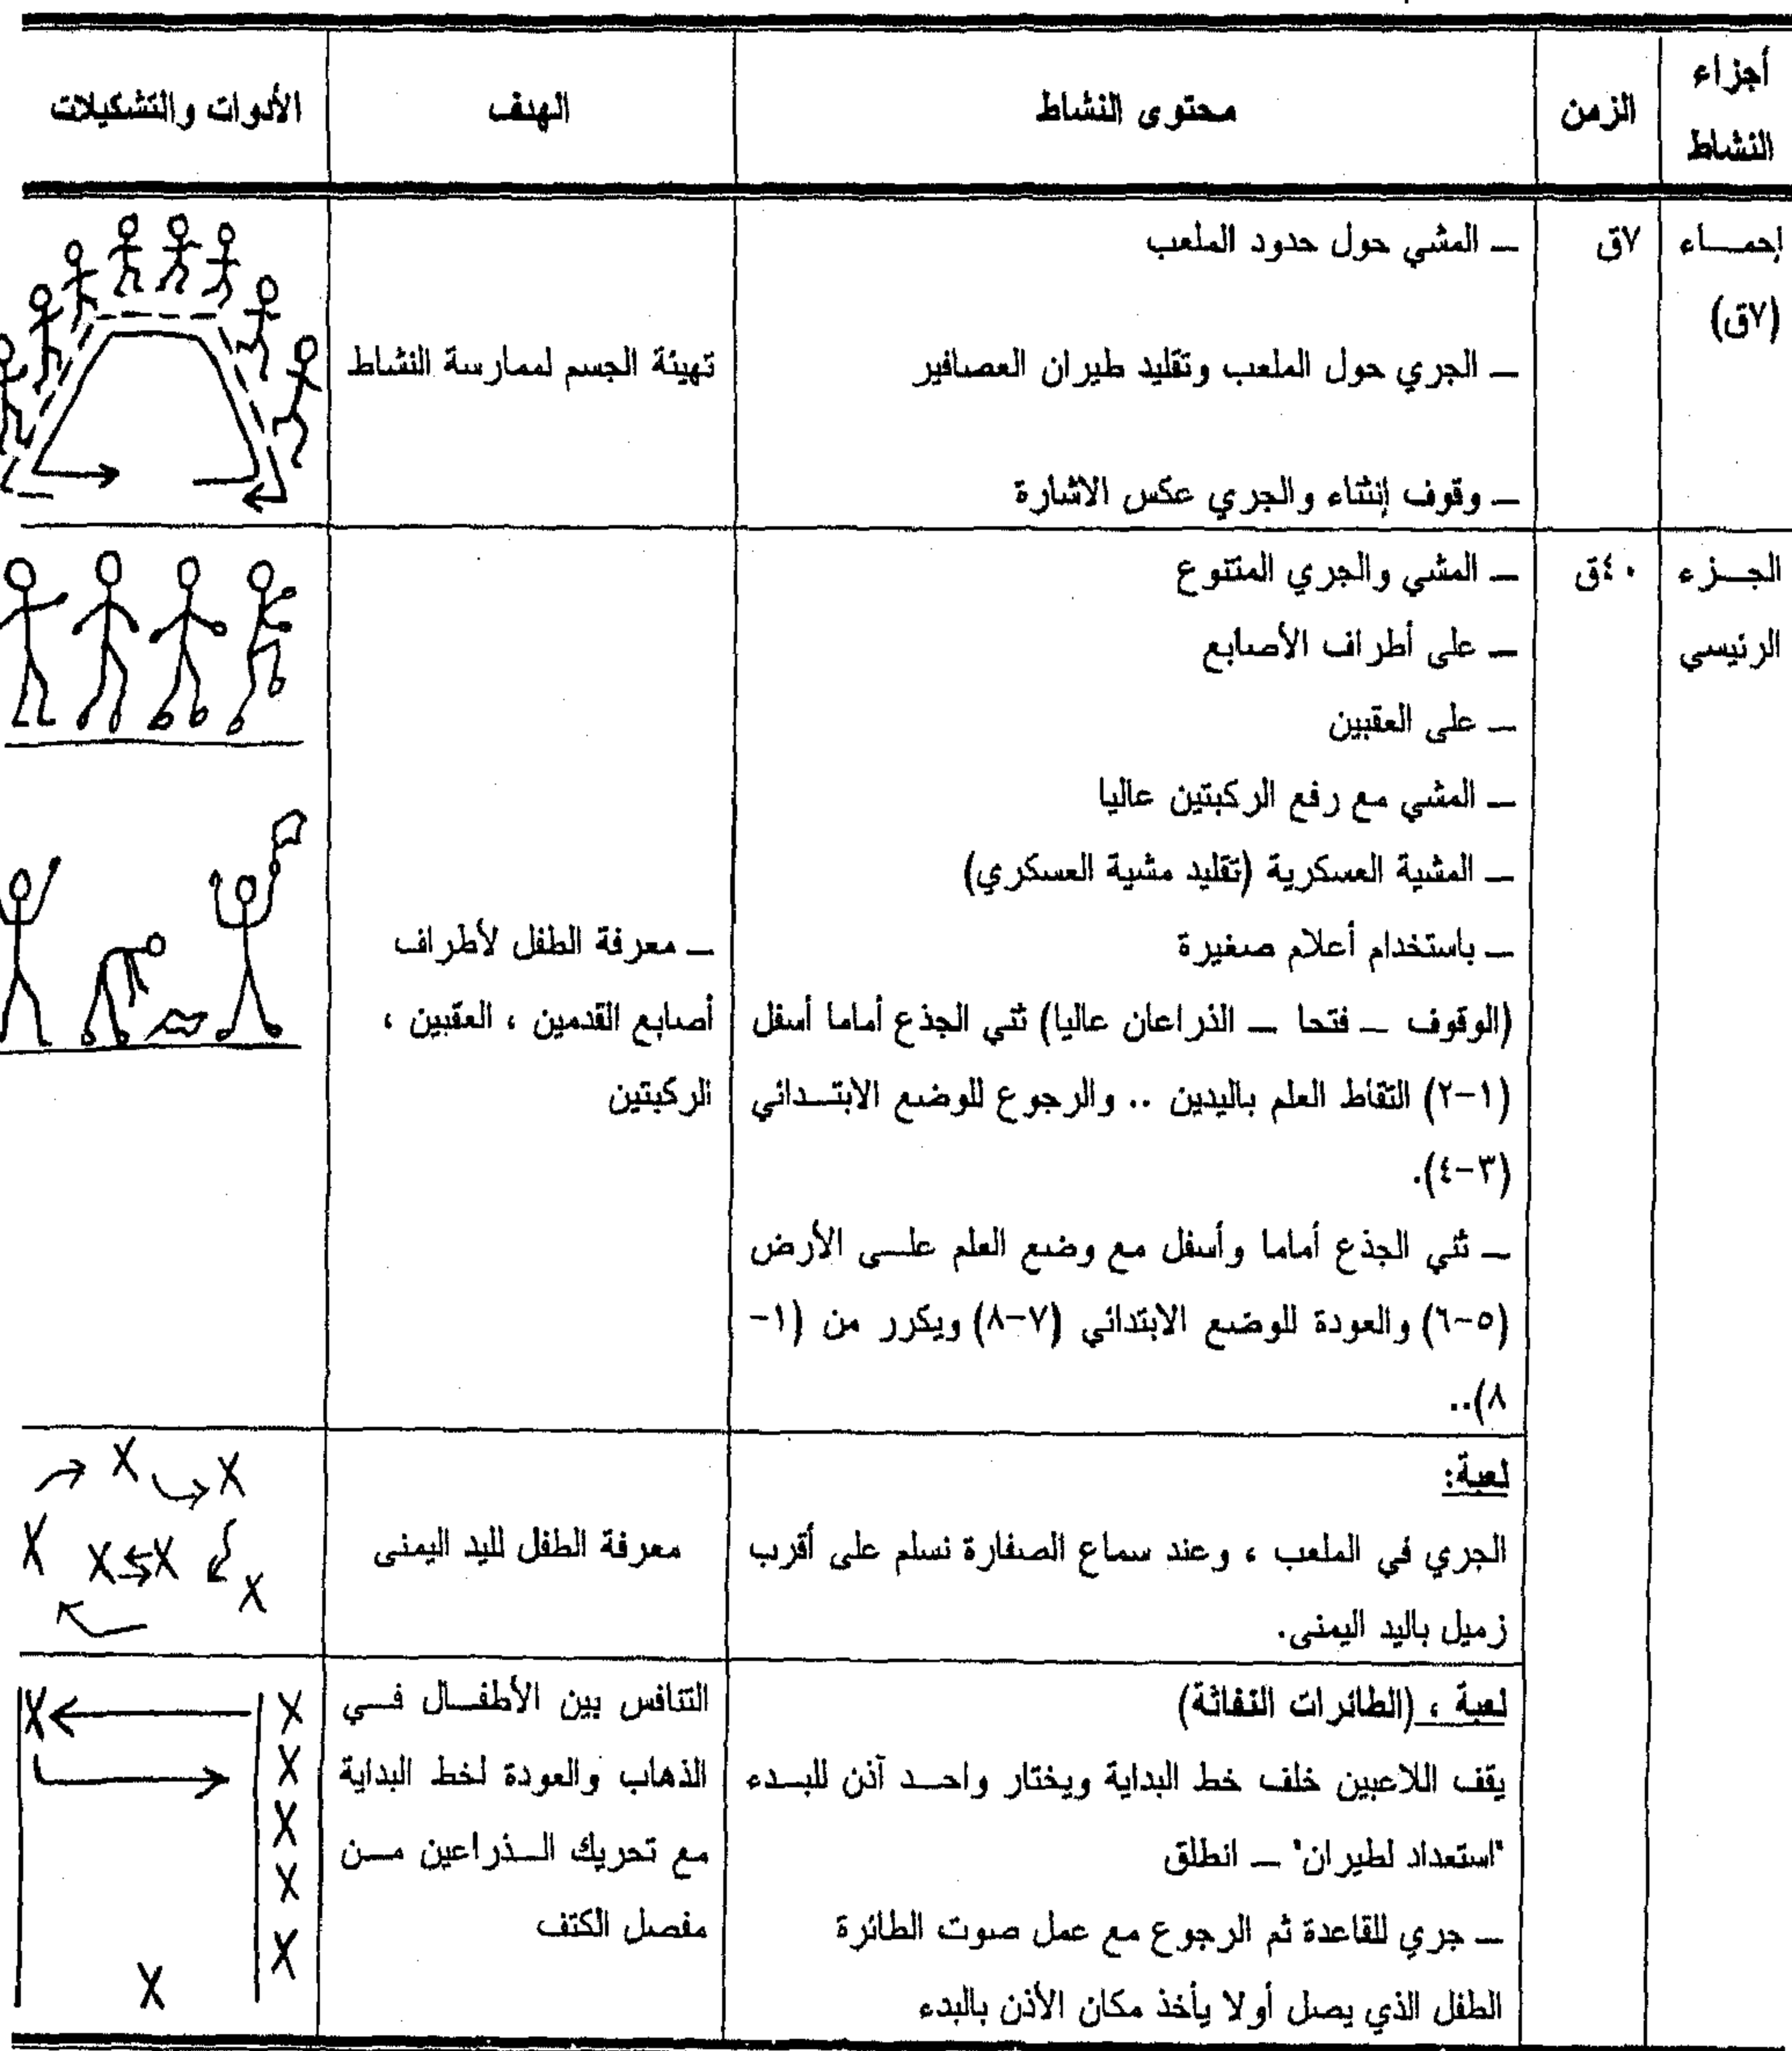 أجزاء
النشاط
الزمن
محتوى النشاط
الهدف
الأدوات والتشكيلات
إحمـــاء
(٧ق)
٧ق
ــ المشي حول حدود الملعب
ــ الجري حول الملعب وتقليد طيران العصافير
ــ وقوف إنثناء والجري عكس الاشارة
تهيئة الجسم لممارسة النشاط
الجـــزء
الرئيسي
٤٠ق
ــ المشي والجري المتنوع
ــ على أطراف الأصابع
ــ على العقبين
ــ المشي مع رفع الركبتين عاليا
ــ المشية العسكرية (تقليد مشية العسكري)
ــ باستخدام أعلام صغيرة
(الوقوف ــ فتحا ــ الذراعان عاليا) ثني الجذع أماما أسفل
(١-٢) التقاط العلم باليدين .. والرجوع للوضع الابتـــدائي
(٣-٤).
ــ ثني الجذع أماما وأسفل مع وضع العلم علـــى الأرض
(٥-٦) والعودة للوضع الابتدائي (٧-٨) ويكرر من (١-
٨)..
ــ معرفة الطفل لأطراف
أصابع القدمين ، العقبين ،
الركبتين
لعبة:
الجري في الملعب ، وعند سماع الصفارة نسلم على أقرب
زميل باليد اليمنى.
معرفة الطفل لليد اليمنى
X X
X X X X
لعبة ، (الطائرات النفاثة)
يقف اللاعبين خلف خط البداية ويختار واحـــد آذن للبـــدء
"استعداد لطيران" ــ انطلق
ــ جري للقاعدة ثم الرجوع مع عمل صوت الطائرة
الطفل الذي يصل أولا يأخذ مكان الأذن بالبدء
التنافس بين الأطفـــال فـــي
الذهاب والعودة لخط البداية
مع تحريك الـــذراعين مـــن
مفصل الكتف
X X
X
X
X
X X